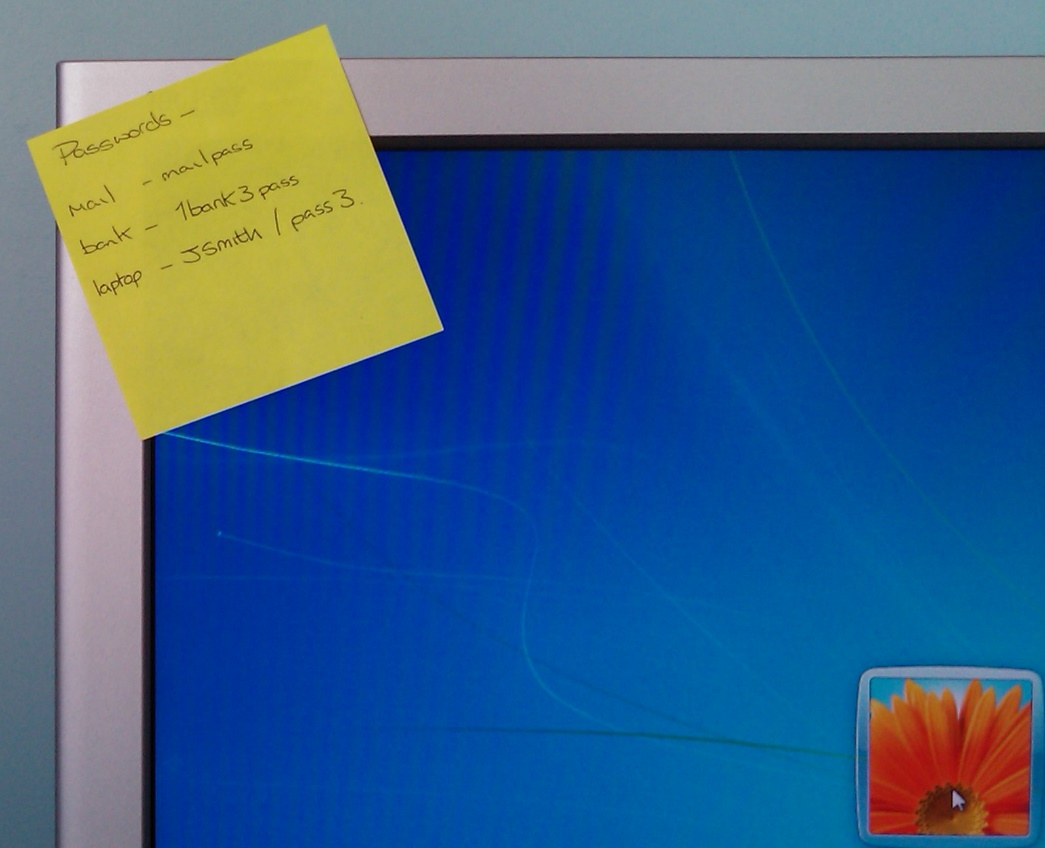 Passwords -
mail - mailpass
bank - 1bank3pass
laptop - JSmith / pass3.